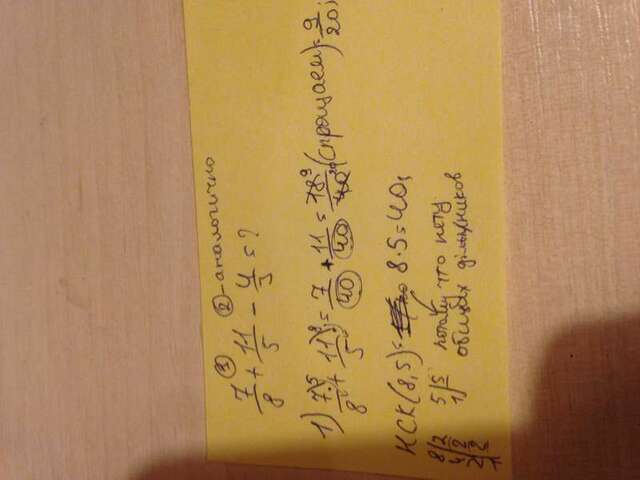 ① ②-аналогично
7/8 + 11/5 - 4/3 = ?
1) 7/8 + 11/5 = 7/40 + 11/40 = 18/40 (спрощаем) = 9/20;
НСК(8,5) = 8·5=40;
8|2 5|5 потому что нету
4|2 1| общих дільников
2|2
1